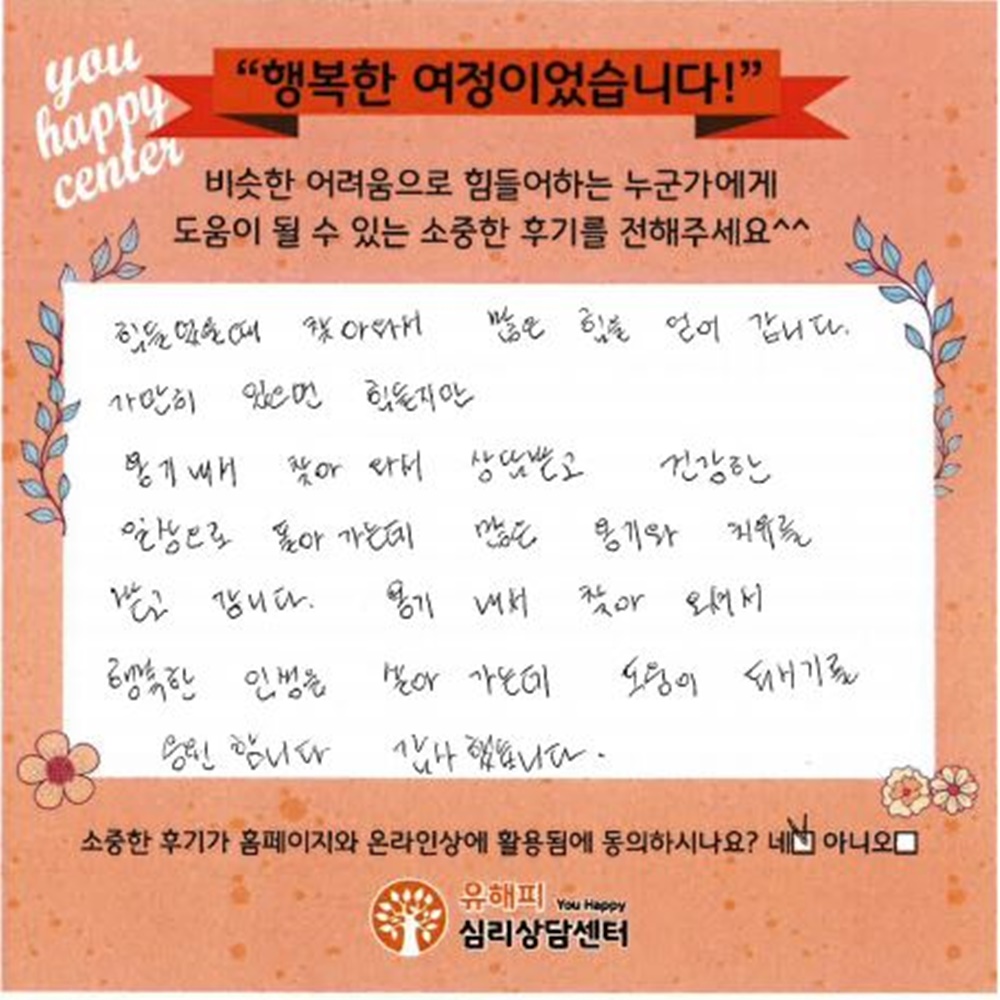 you
happy
center
“행복한 여정이었습니다!”
비슷한 어려움으로 힘들어하는 누군가에게
도움이 될 수 있는 소중한 후기를 전해주세요^^
힘들었을때 찾아와서 많은 힘을 얻어 갑니다.
가만히 있으면 힘들지만
용기내서 찾아 와서 상담받고 건강한
일상으로 돌아 가는데 많은 용기와 치유를
받고 갑니다. 용기 내서 찾아 오셔서
행복한 인생을 살아 가는데 도움이 되시기를
응원 합니다 감사했습니다.
소중한 후기가 홈페이지와 온라인상에 활용됨에 동의하시나요? 네 아니오
유해피 You Happy
심리상담센터